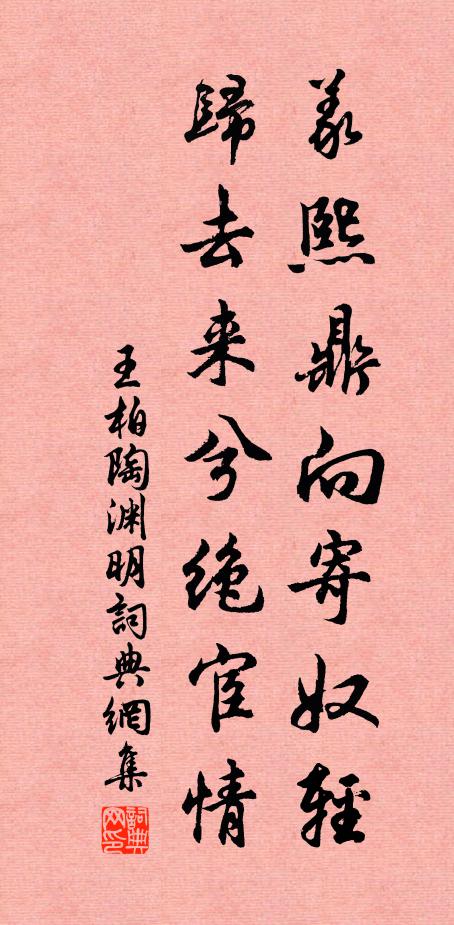 義熙鼎向寄奴輕
歸去来兮絶宦情
王柏陶渊明詞典網集
詞典
网印